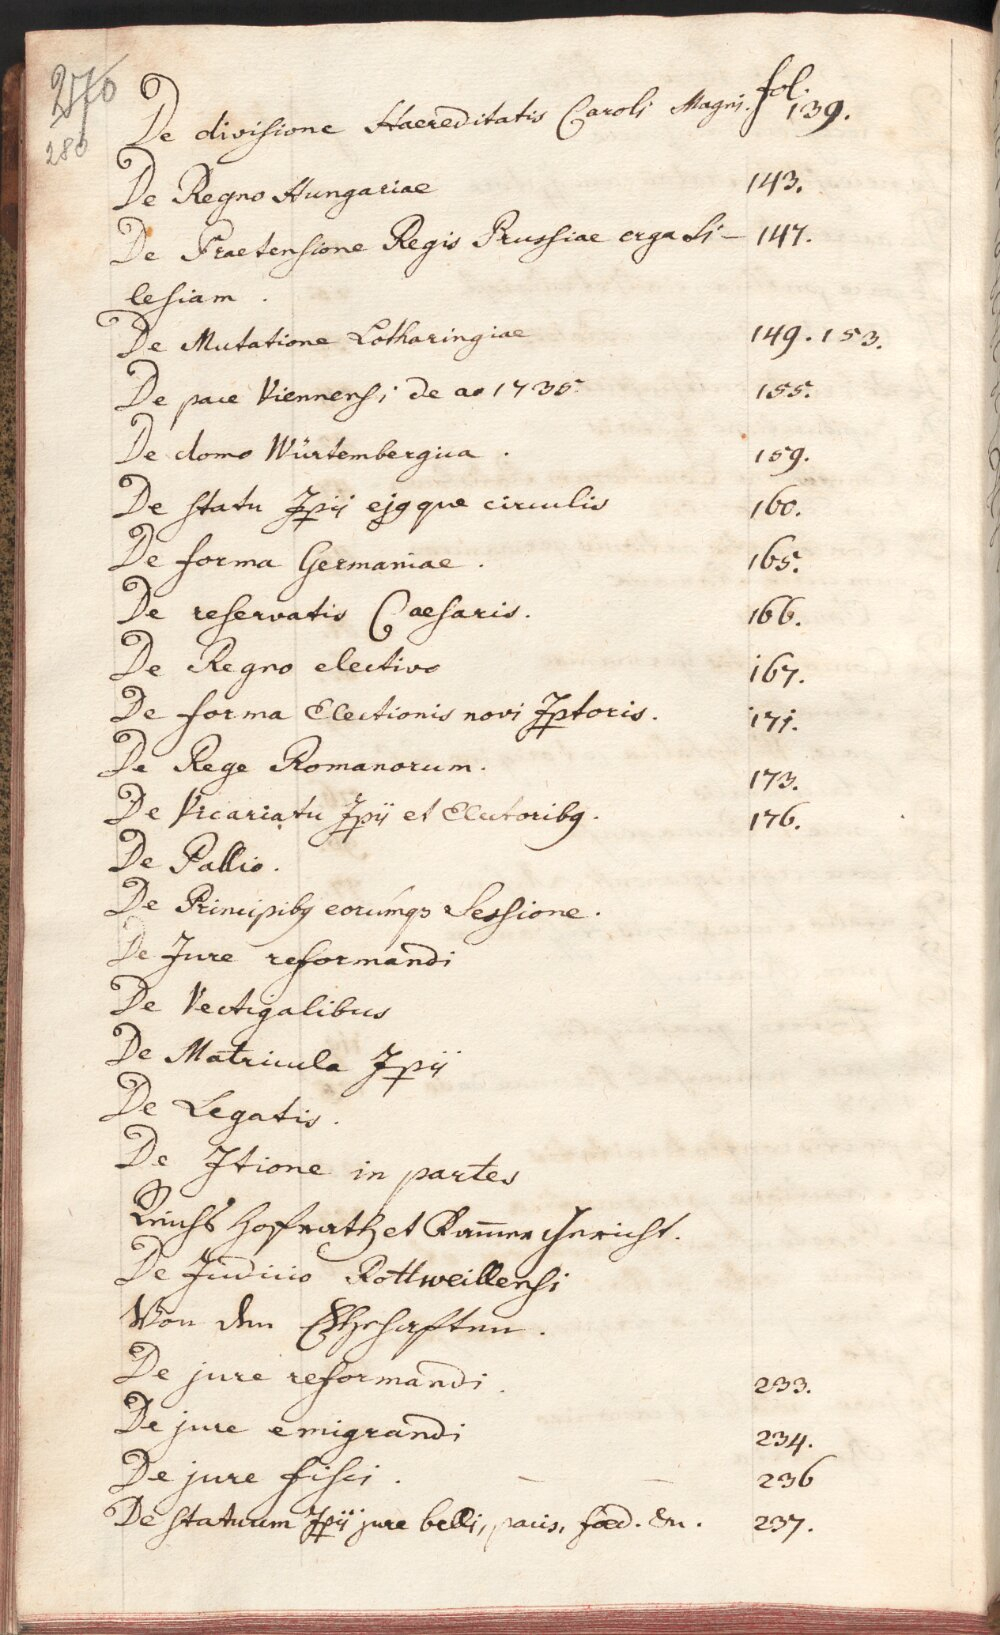 270
280
fol.
De divisione Haereditatis Caroli Magni. 139.
De Regno Hungariae 143.
De Praetensione Regis Prussiae erga Si- 147.
lesiam.
De Mutatione Lotharingiae 149. 153.
De pace Viennensi de ao 1735. 155.
De domo Würtembergica. 159.
De statu Jpii ejqque circulis 160.
De forma Germaniae. 165.
De reservatis Caesaris. 166.
De Regno electivo 167.
De forma Electionis novi Jptoris. 171.
De Rege Romanorum. 173.
De Vicariatu Jpii et Electoribq. 176.
De Pallio.
De Principibq eorumqз Sessione.
De Jure reformandi
De Vectigalibus
De Matricula Jpii
De Legatis.
De Itione in partes
Reichs Hofrath et Kam̄er Gericht.
De Judicio Rottweillensi
Von den Ehehaften.
De jure reformandi. 233.
De jure emigrandi 234.
De jure fisci. — — 236
De statuum Jpii jure belli, pacis, foed. &c. 237.